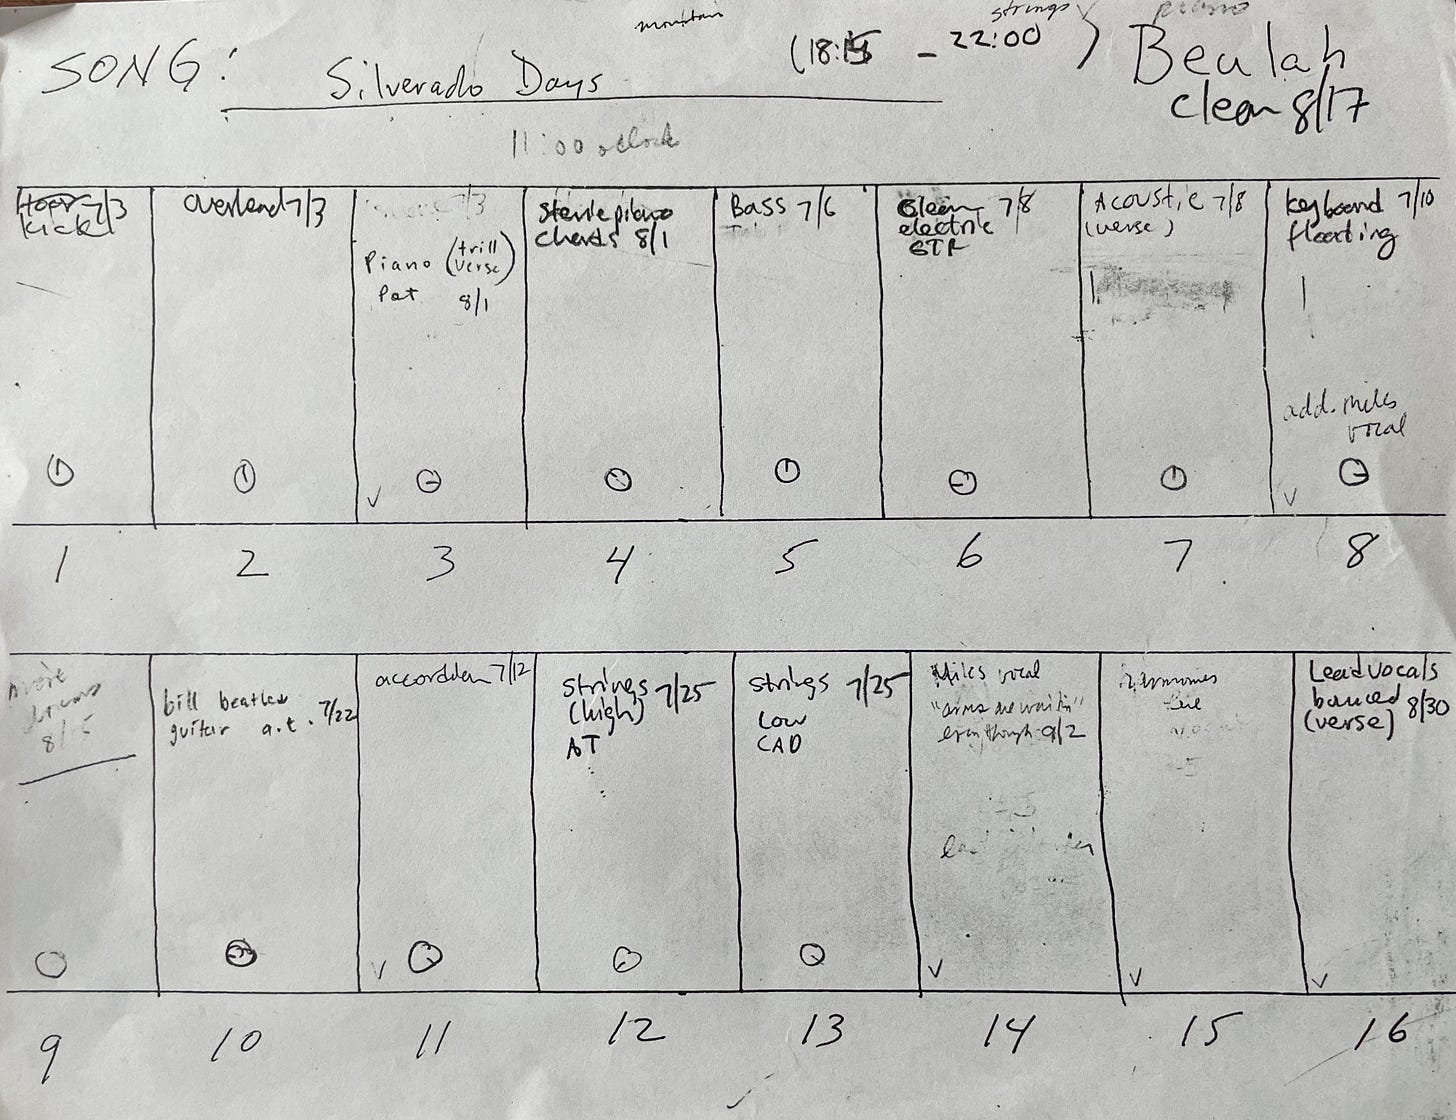 mountain
strings
piano
SONG: Silverado Days
(18:15 - 22:00)
Beulah
clean 8/17
11:00 oclock
7/3
kick
overhead 7/3
7/3
Piano (trill
verse)
Pat 8/1
piano
chords 8/1
Bass 7/6
Clean 7/8
electric
GTR
Acoustic 7/8
(verse)
keyboard 7/10
floating
add. miles
vocal
1
2
3
4
5
6
7
8
more
drums
8/15
bill beatles
guitar a.t. 7/22
accordian 7/12
strings 7/25
(high)
AT
strings 7/25
Low
CAD
Miles vocal
"arms are waitin"
even though 9/2
harmonies
Lead vocals
bounced 8/30
(verse)
9
10
11
12
13
14
15
16